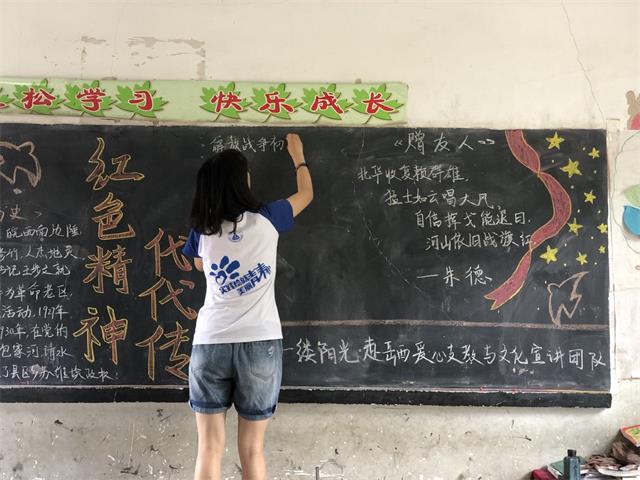 松学习 快乐成长
红色精神
代代传
解救战争初
《赠友人》
北华收复赖群雄
猛士如云唱大风
自信挥戈能退日
河山依旧战旗红
——朱德
史>
皖西南边陲
人杰地灵
革命老区
活动,1927年
1930年,在党的
包家河,请水
美丽青春
一缕阳光·赴岳西爱心支教与文化宣讲团队